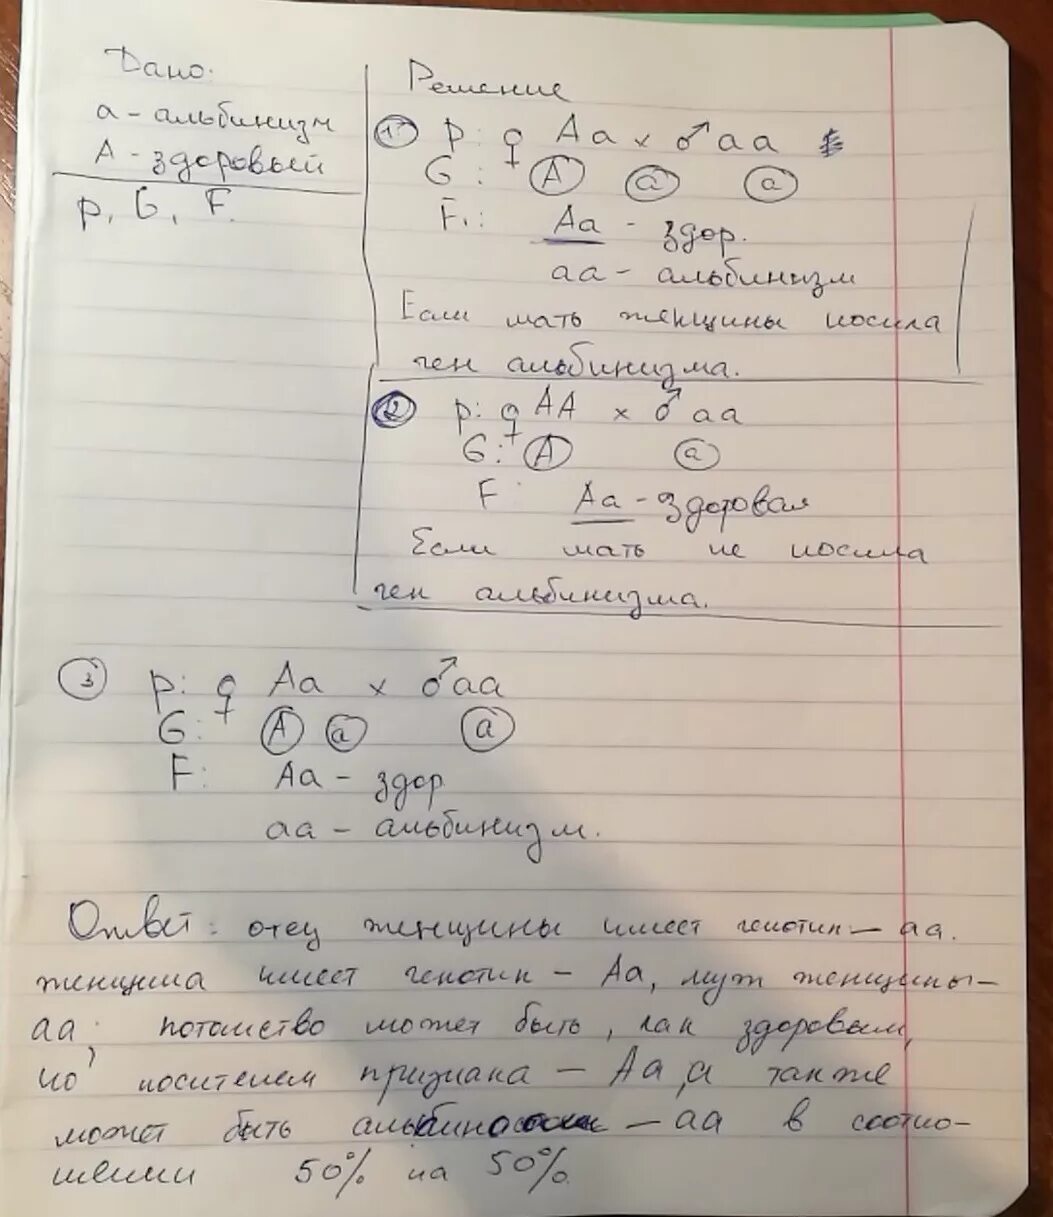 Дано:
а - альбинизм
А - здоровый
P, G, F.
Решение
① P: ♀ Aa x ♂ aa
G: A a a
F₁: Aa - здор.
aa - альбинизм
Если мать женщины носила
ген альбинизма.
② P: ♀ AA x ♂ aa
G: A a
F: Aa - здоровая
Если мать не носила
ген альбинизма.
③ P: ♀ Aa x ♂ aa
G: A a a
F: Aa - здор
aa - альбинизм.
Ответ: отец женщины имеет генотип - aa.
женщина имеет генотип - Aa, муж женщины -
aa; потомство может быть, как здоровым,
но носителем признака - Aa, а также
может быть - aa в соотно-
шении 50% на 50%.